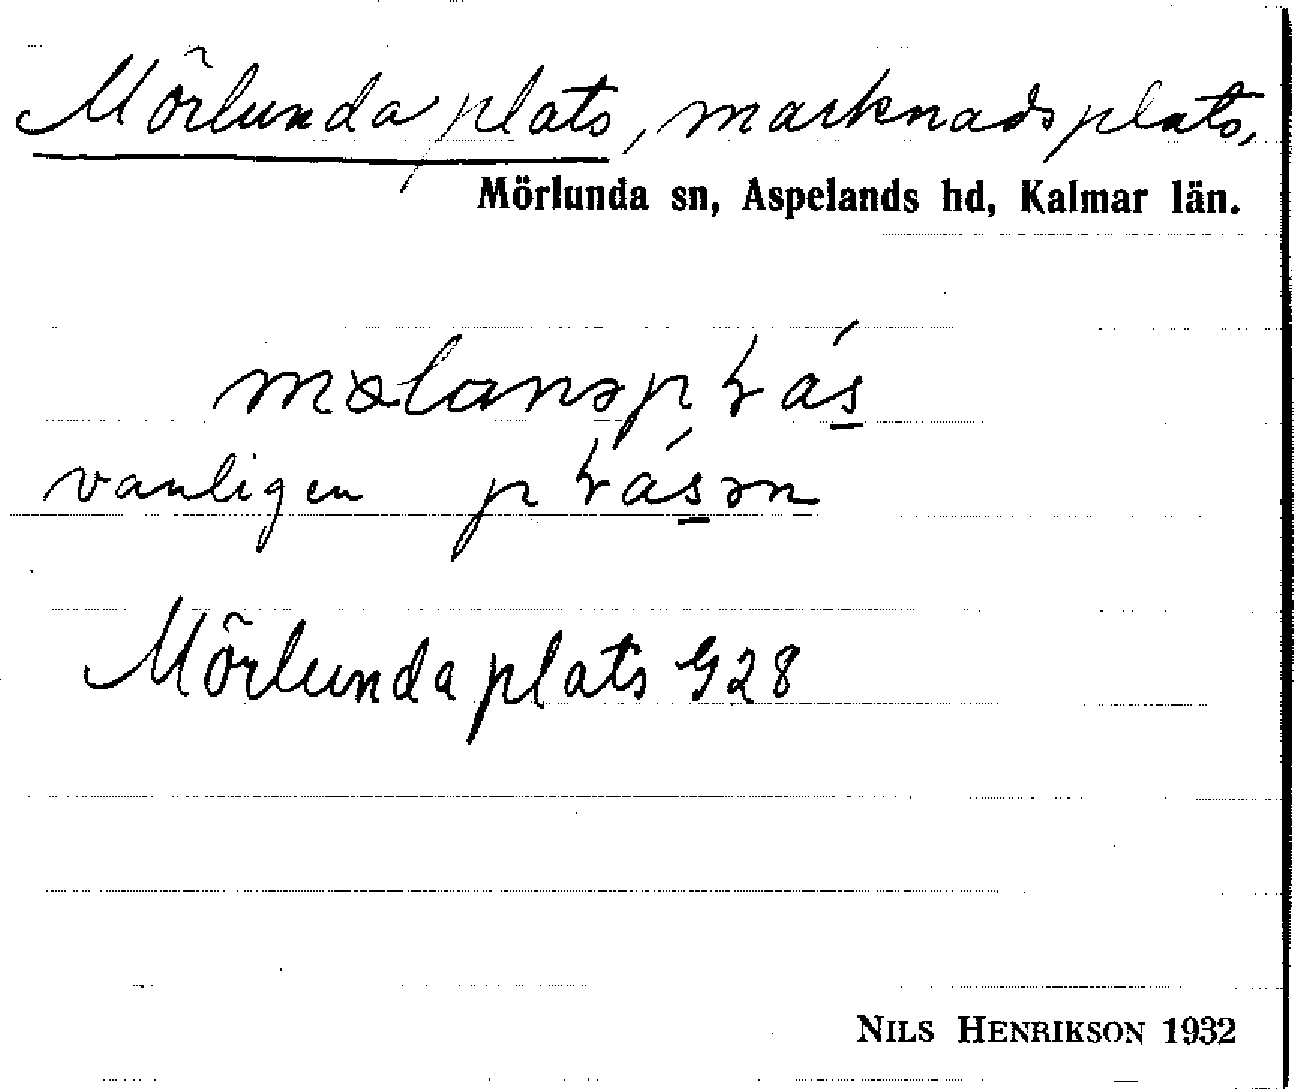 Mörlunda plats, marknadsplats,
Mörlunda sn, Aspelands hd, Kalmar län.
vanligen
Mörlunda plats G28
NILS HENRIKSON 1932